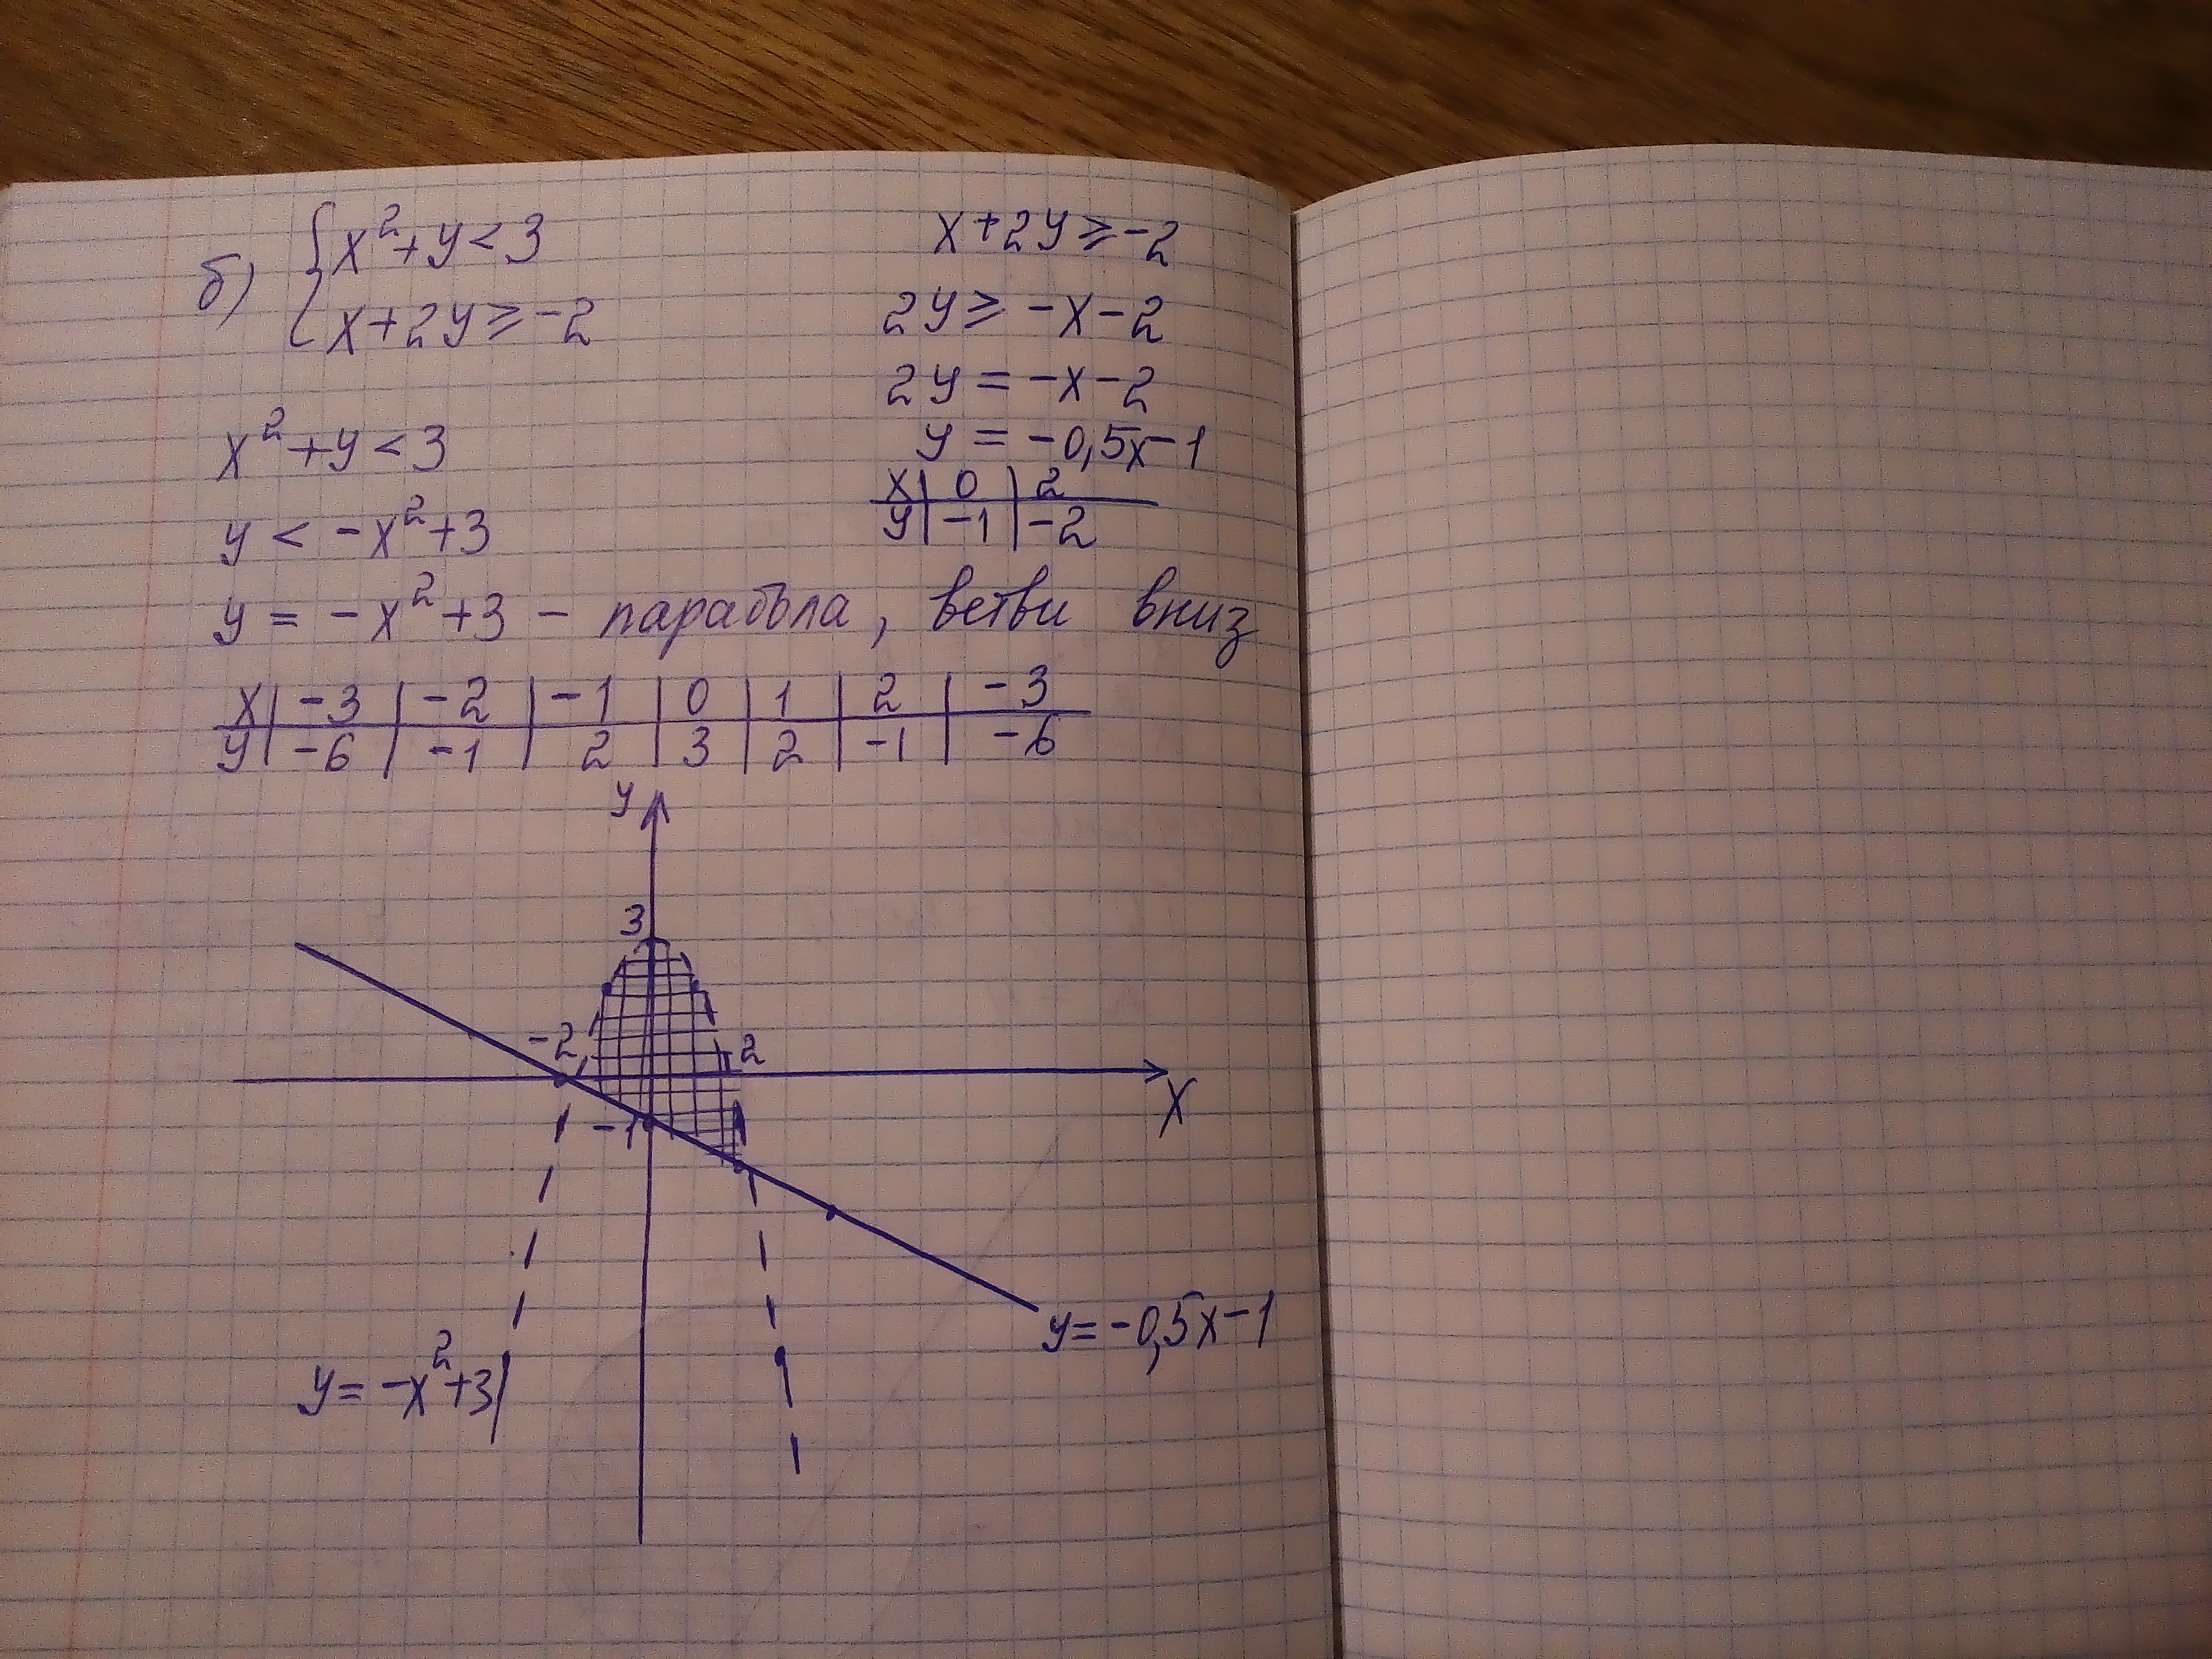 б) { x² + y < 3
x + 2y ≥ -2
x² + y < 3
y < -x² + 3
x + 2y ≥ -2
2y ≥ -x - 2
2y = -x - 2
y = -0,5x - 1
x | 0 | 2
y | -1 | -2
y = -x² + 3 - парабола, ветви вниз
x | -3 | -2 | -1 | 0 | 1 | 2 | -3
y | -6 | -1 | 2 | 3 | 2 | -1 | -6
y
3
-2
2
x
-1
y = -0,5x - 1
y = -x² + 3